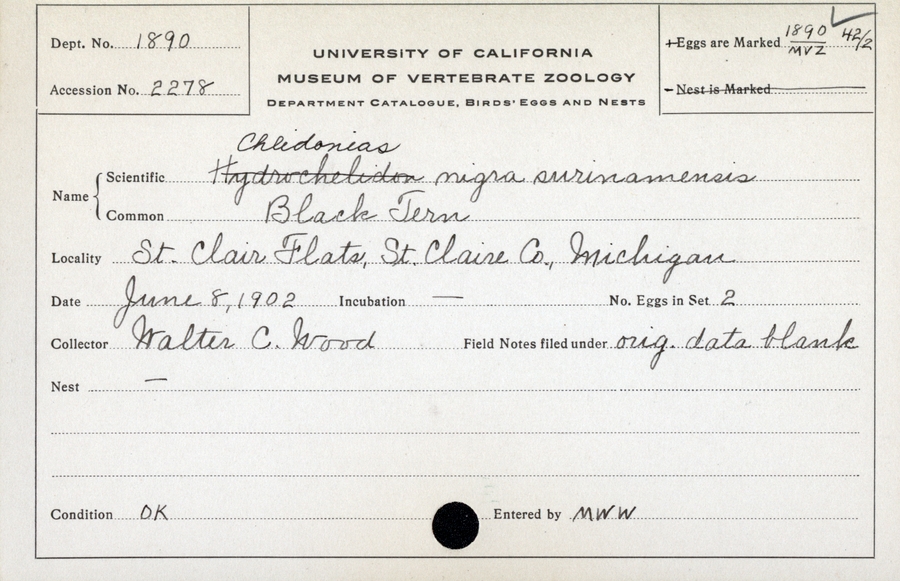 Dept. No. 1890
Accession No. 2278
UNIVERSITY OF CALIFORNIA
MUSEUM OF VERTEBRATE ZOOLOGY
DEPARTMENT CATALOGUE, BIRDS' EGGS AND NESTS
+Eggs are Marked 1890/MVZ 42/2
-Nest is Marked
Chlidonias
Name { Scientific Hydrochelidon nigra surinamensis
Common Black Tern
Locality St. Clair Flats, St. Claire Co., Michigan
Date June 8, 1902 Incubation — No. Eggs in Set 2
Collector Walter C. Wood Field Notes filed under orig. data blank
Nest —
Condition OK Entered by MWW